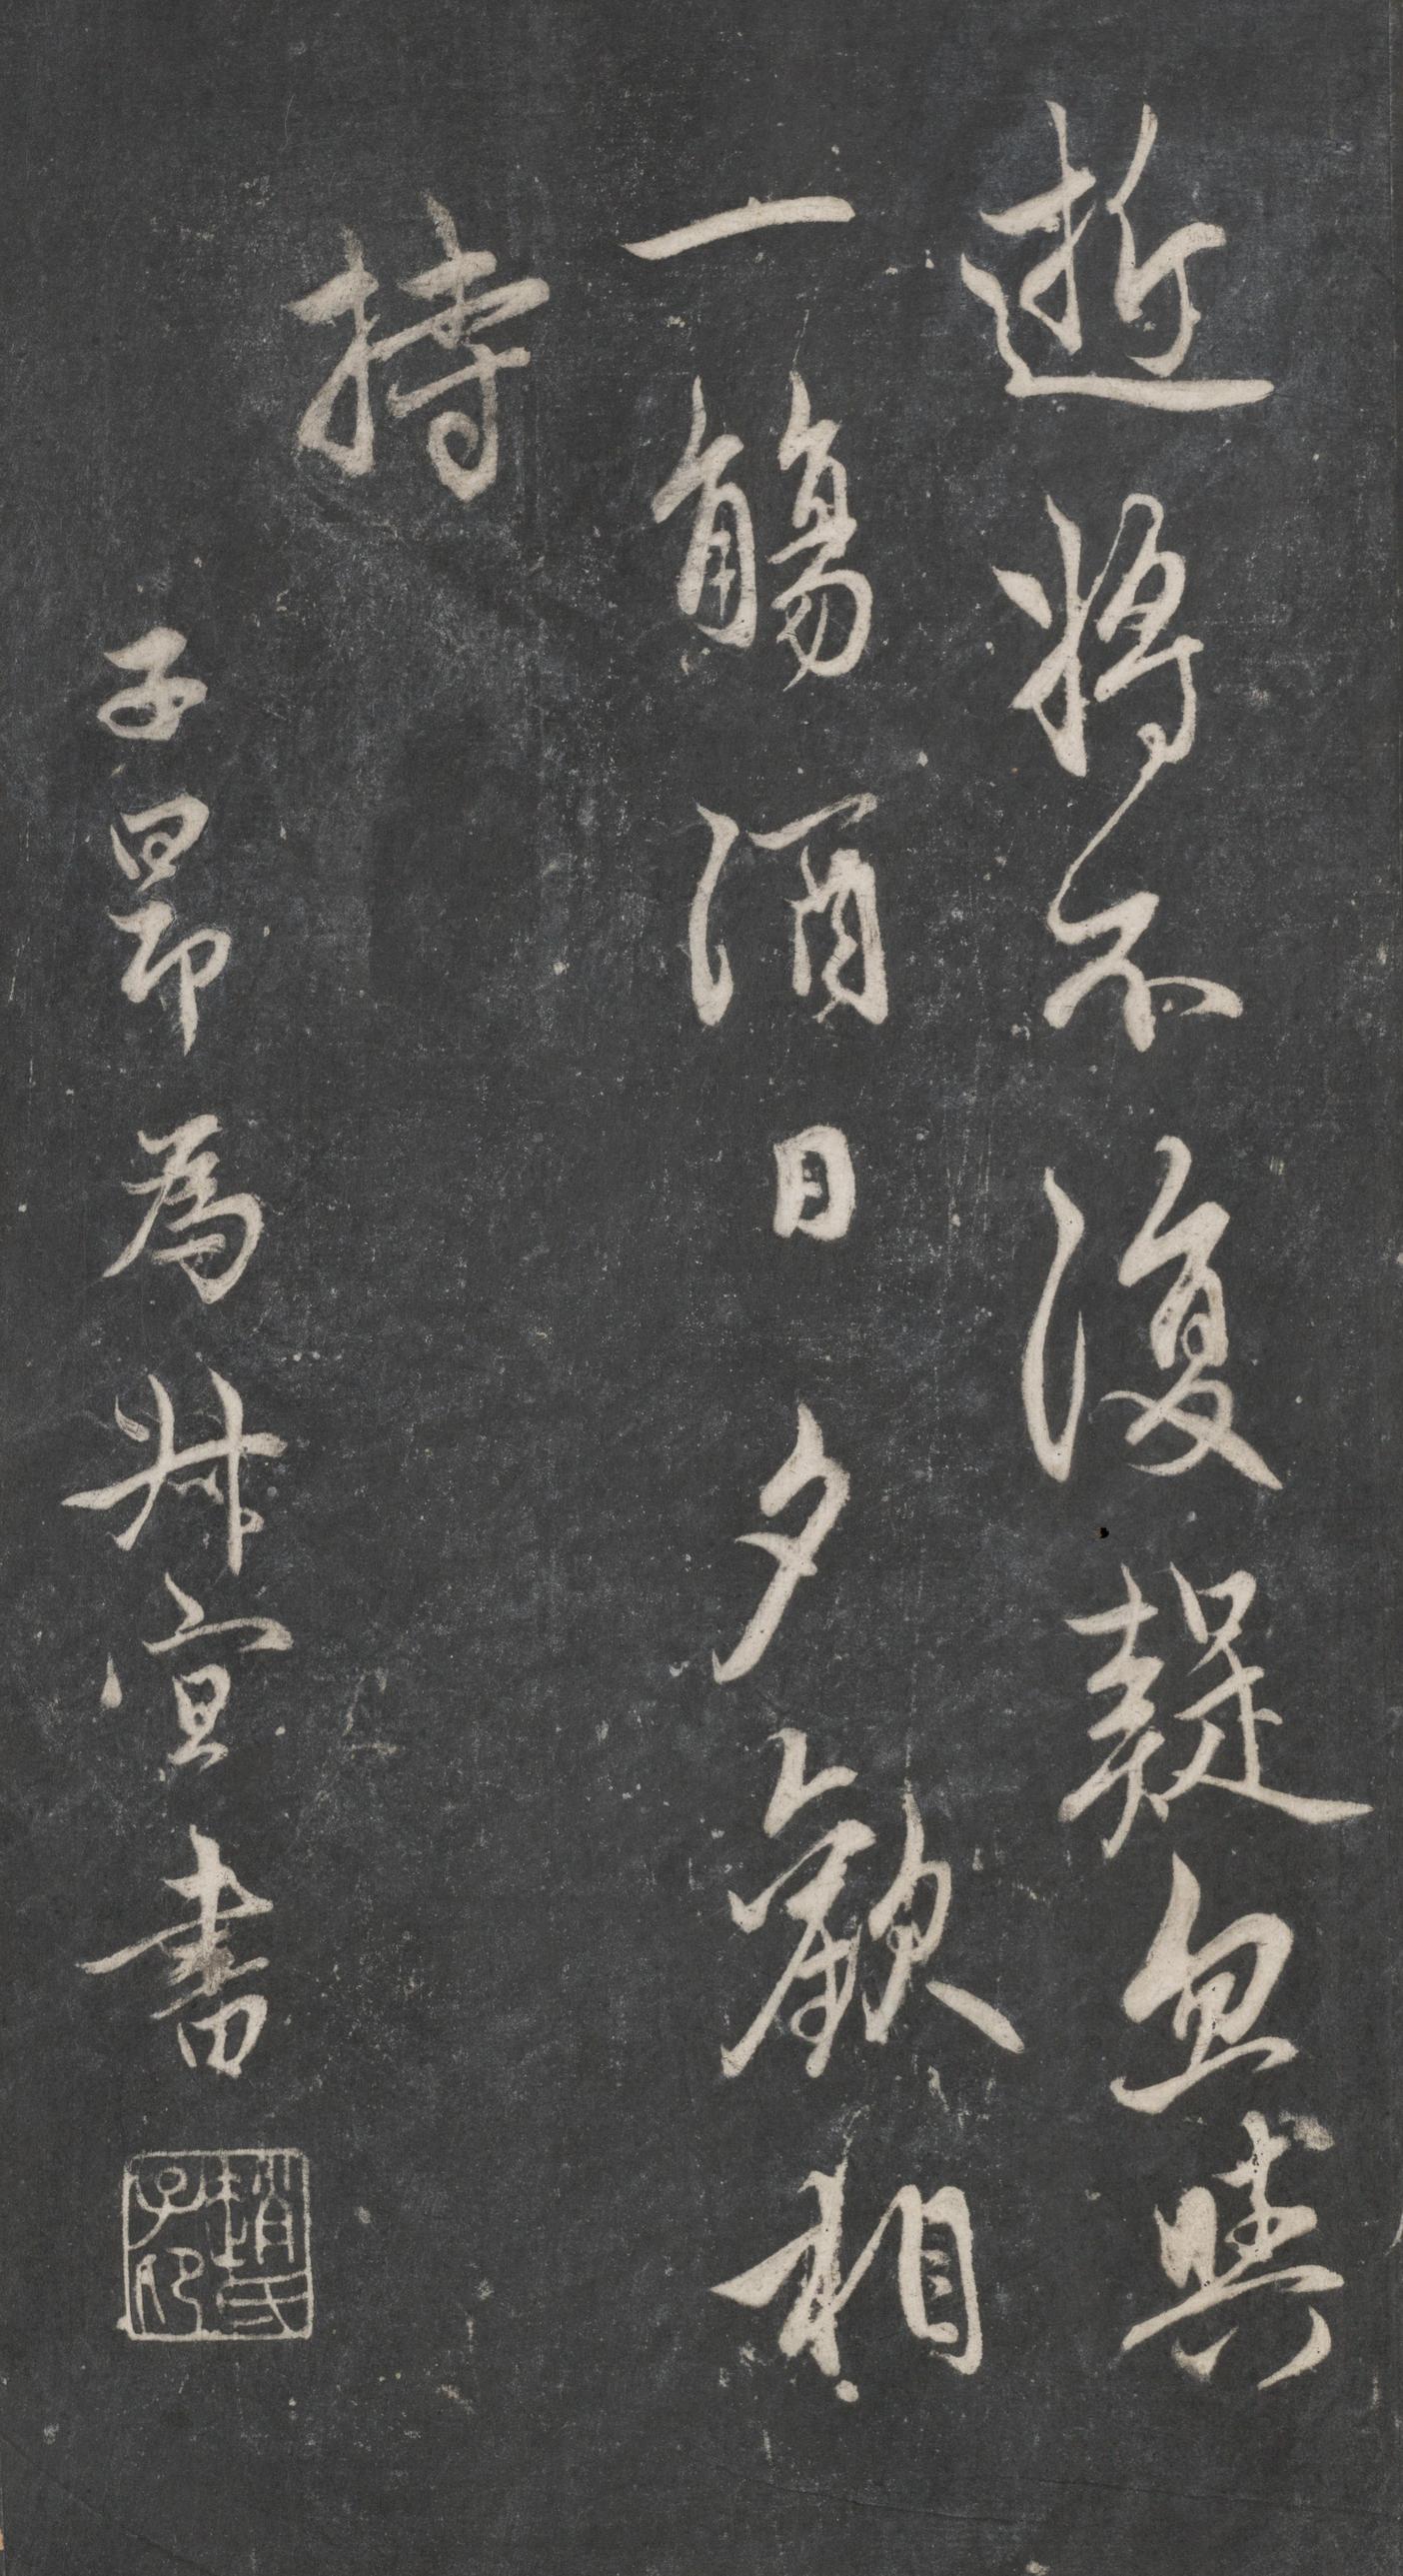 逝將不復疑忽與
一觴酒日夕歡相
持
子昂為叔宣書
趙氏子昂